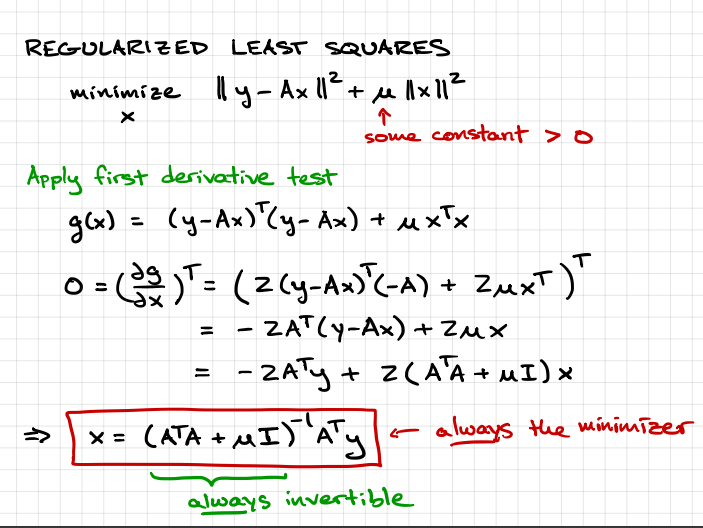 REGULARIZED LEAST SQUARES
minimize ‖y - Ax‖² + μ‖x‖²
x
↑
some constant > 0
Apply first derivative test
g(x) = (y-Ax)ᵀ(y-Ax) + μxᵀx
0 = (∂g/∂x)ᵀ = (2(y-Ax)ᵀ(-A) + 2μxᵀ)ᵀ
= -2Aᵀ(y-Ax) + 2μx
= -2Aᵀy + 2(AᵀA + μI)x
⇒ x = (AᵀA + μI)⁻¹Aᵀy ← always the minimizer
always invertible